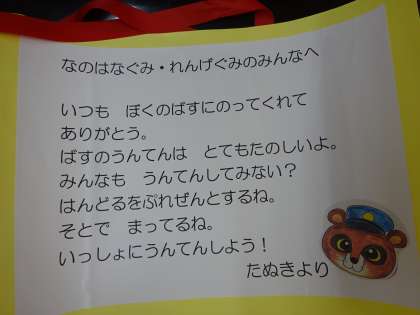 なのはなぐみ・れんげぐみのみんなへ
いつも　ぼくのばすにのってくれて
ありがとう。
ばすのうんてんは　とてもたのしいよ。
みんなも　うんてんしてみない？
はんどるをぷれぜんとするね。
そとで　まってるね。
いっしょにうんてんしよう！
たぬきより